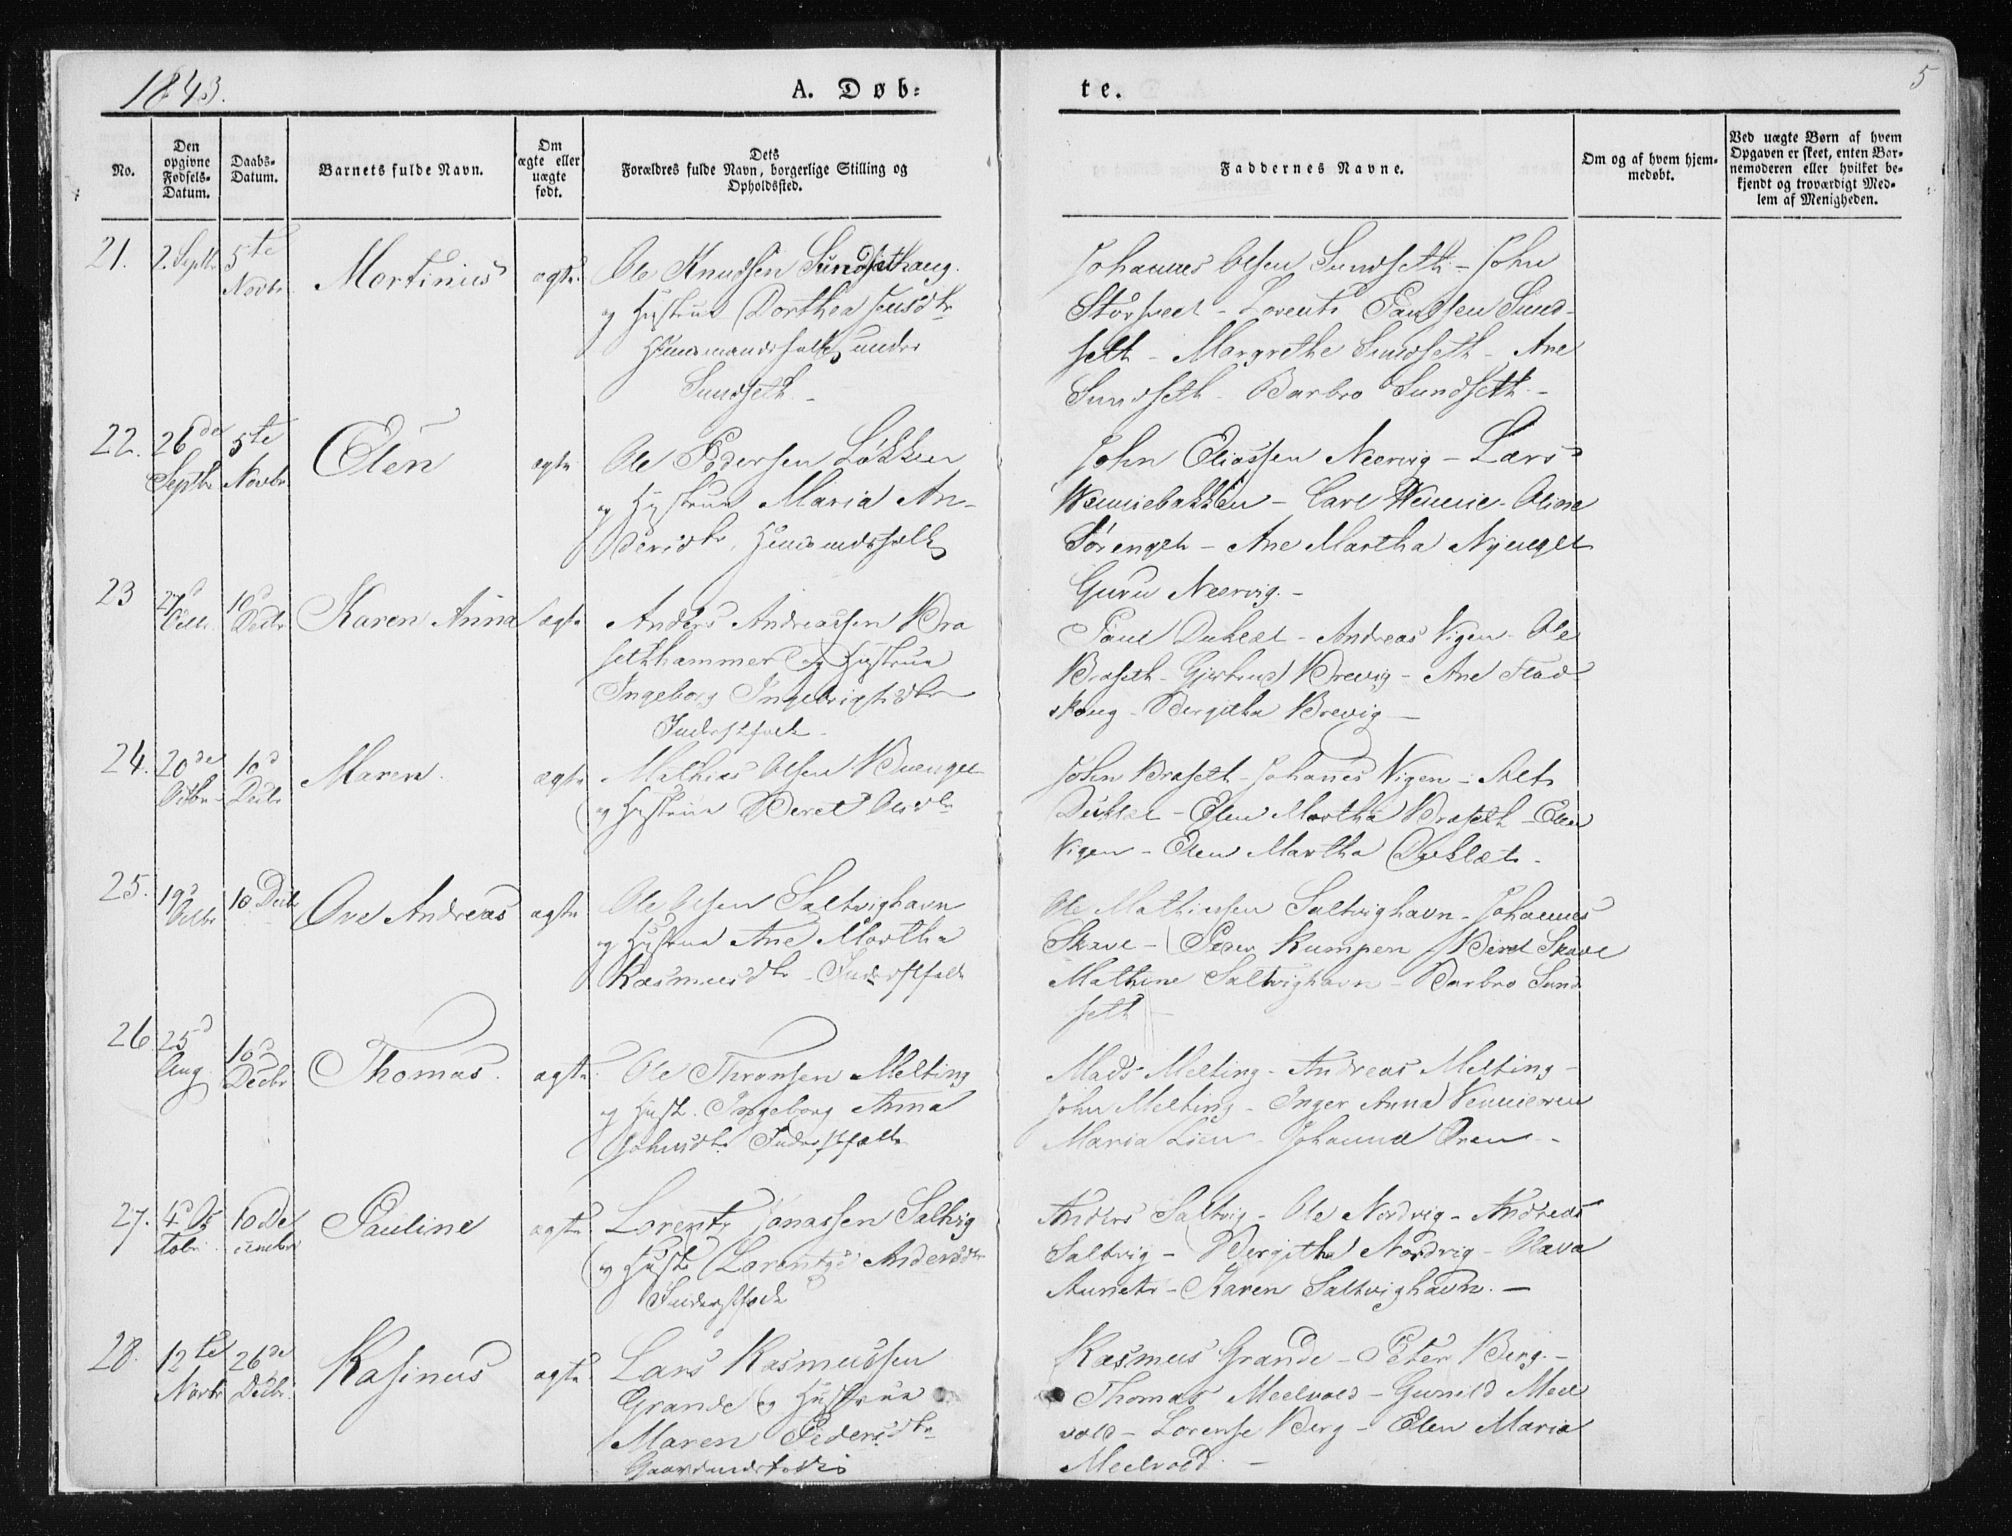 1843.
A. Døb=
te.
5
No.
Den opgivne Fødsels-Datum.
Daabs-Datum.
Barnets fulde Navn.
Om ægte eller uægte født.
Dets Forældres fulde Navn, borgerlige Stilling og Opholdssted.
Faddernes Navne.
Om og af hvem hjemmedøbt.
Ved uægte Børn af hvem Opgaven er skeet, enten Barnemoderen eller hvilket bekjendt og troværdigt Medlem af Menigheden.
21.
2. Septbr
5te
Novbr
Mortinius
ægte.
Ole Knudsen Sundsethaug.
og Hustrue Dorthea Jensdtr
Huusmandsfolk under
Sundseth. -
Johannes Olsen Sundseth - John
Storhvel - Lorents Paulsen Sund-
seth - Margrethe Sundseth - Ane
Sundseth - Barbro Sundseth. -
22.
26de
Septbr
5te
Novbr
Elen
ægte
Ole Pedersen Løkken
og Hustrue Maria An-
dersdtr, Huusmdsfolk
John Eliassen Neervig - Lars
Wenniebakken - Carl Wennie - Oline
Sørenget - Ane Martha Nyenget
Guru Neervig. -
23
27d
Octbr.
10d
Decbr
Karen Anna
ægte
Anders Andreassen Bra
sethhammer og Hustrue
Ingeborg Ingebrigtsdtr
Inderstfolk -
Paul Duklæt - Andreas Vigen - Ole
Braseth - Gjertrud Brevig - Ane Flad
skoug - Bergitha Brevig -
24.
20de
Octbr
10d
Decbr
Maren.
ægte
Mathias Olsen Buenget
og Hustrue Beret Olsdtr
John Braseth - Johanes Vigen - Alt
Duklæt - Elen Martha Braseth - Elen
Vigen - Elen Martha Duklæt -
25.
19d
Octbr
10 Decbr
Ove Andreas
ægte
Ole Olsen Saltvighavn
og Hustrue Ane Martha
Rasmusdtr - Inderstfolk
Ole Mathiassen Saltvighavn - Johannes
Skavl - Peder Rumpen / Beret Skavl
Mathine Saltvighavn - Barbro Sund
seth -
26.
25d
Aug
10d
Decbr
Thomas.
ægte
Ole Thronsen Melting
og Hust. Ingeborg Anna
Johnsdtr. Inderstfolk
Mads Melting - Andreas Melting -
John Melting - Inger Anna Wennieren
Maria Lien - Johanna Oren -
27.
4d Oc
tobr
10 De
cembr
Pauline
ægte
Lorents Jonassen Saltvig
og Hust. Lorentze Andersdtr
Inderstfolk
Anders Saltvig - Ole Nordvig - Andreas
Saltvig - Bergitha Nordvig - Olava
Aunet - Karen Saltvighavn. -
28.
12te
Novbr
26de
Decbr
Rasinus
ægte
Lars Rasmussen
Grande og Hustrue
Maren Pedersdtr
Rasmus Grande - Peter Berg. -
Thomas Meelvold - Gunild Meel
vold - Lorense Berg - Elen Maria
Meelvold. -